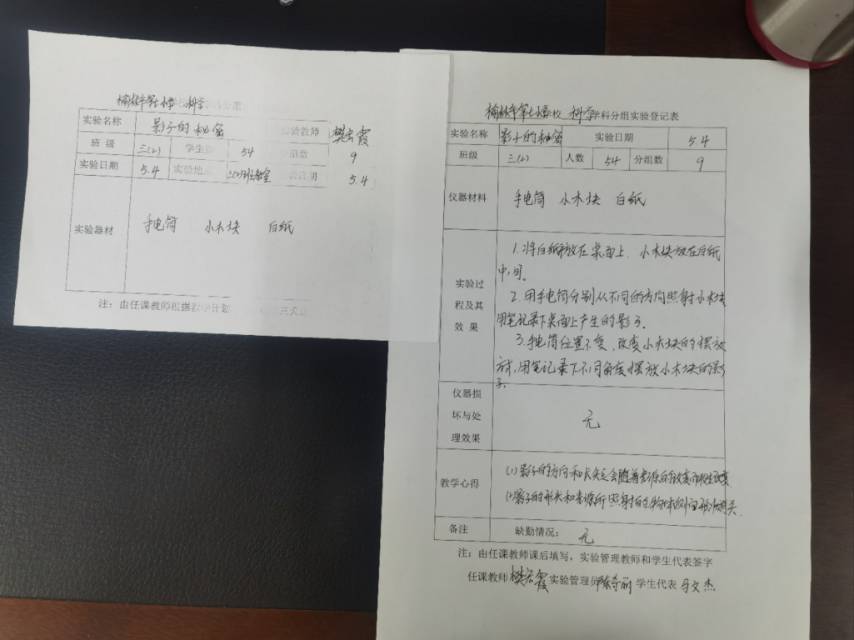 科学
实验名称 影子的秘密 实验教师 樊云霞
班 级 三(2) 学生 54 组数 9
实验日期 5.4 实验地 三(2)班教室 5.4
实验器材 手电筒 小木块 白纸
注：由任课教师根据 计划
学校 科学 学科分组实验登记表
实验名称 影子的秘密 实验日期 5.4
班级 三(2) 人数 54 分组数 9
仪器材料 手电筒 小木块 白纸
实验过
程及其
效 果
1.将白纸平放在桌面上，小木块放在白纸
中间。
2.用手电筒分别从不同的方向照射小木块
用笔记录下桌面上产生的影子。
3.手电筒位置不变，改变小木块的摆放
方式，用笔记录下不同角度摆放小木块的影
子。
仪器损
坏与处
理效果
无
教学心得
(1)影子的方向和长短会随着光源的改变而发生改变
(2)影子的形状和光源所照射的物体的面形状有关.
备注 缺勤情况： 无
注：由任课教师课后填写，实验管理教师和学生代表签字
任课教师 樊云霞 实验管理员 学生代表 马文杰